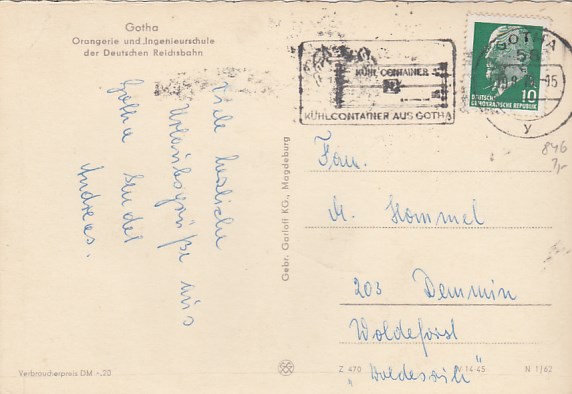 Gotha
Orangerie und Ingenieurschule
der Deutschen Reichsbahn
Viele herzliche
Urlaubsgrüße aus
Gotha sendet
Andreas.
Gebr. Garloff KG., Magdeburg
KÜHLCONTAINER
KÜHLCONTAINER AUS GOTHA
GOTHA
58
15
y
DEUTSCHE
DEMOKRATISCHE REPUBLIK
10
846
Fam.
M. Hommel
203 Demmin
Woldeforst
Verbraucherpreis DM -.20
Z 470
V 14 45
N 1/62